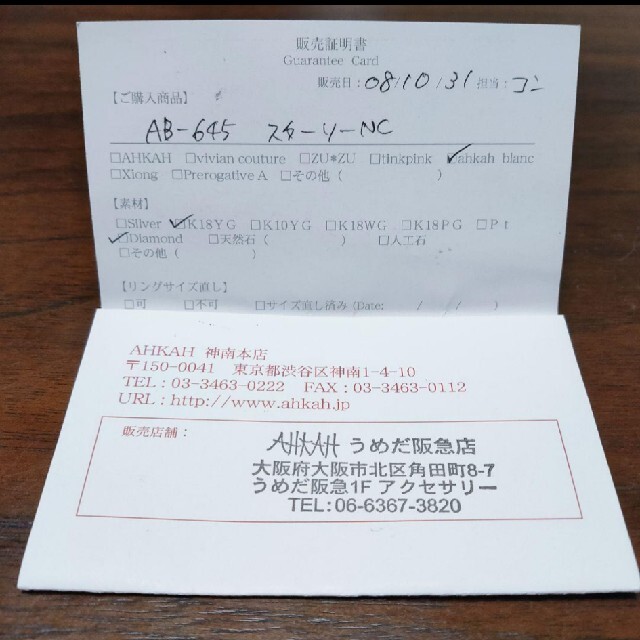 販売証明書
Guarantee Card
販売日：08/10/31 担当：コン
【ご購入商品】
AB-645 スターリーNC
□AHKAH □vivian couture □ZU*ZU □tinkpink ☑ahkah blanc
□Xlong □Prerogative A □その他（ ）
【素材】
□Silver ☑K18YG □K10YG □K18WG □K18PG □Pt
☑Diamond □天然石（ ） □人工石
□その他（ ）
【リングサイズ直し】
□可 □不可 □サイズ直し済み（Date: / / ）
AHKAH 神南本店
〒150-0041 東京都渋谷区神南1-4-10
TEL：03-3463-0222 FAX：03-3463-0112
URL：http://www.ahkah.jp
販売店舗：
AHKAH うめだ阪急店
大阪府大阪市北区角田町8-7
うめだ阪急1F アクセサリー
TEL:06-6367-3820